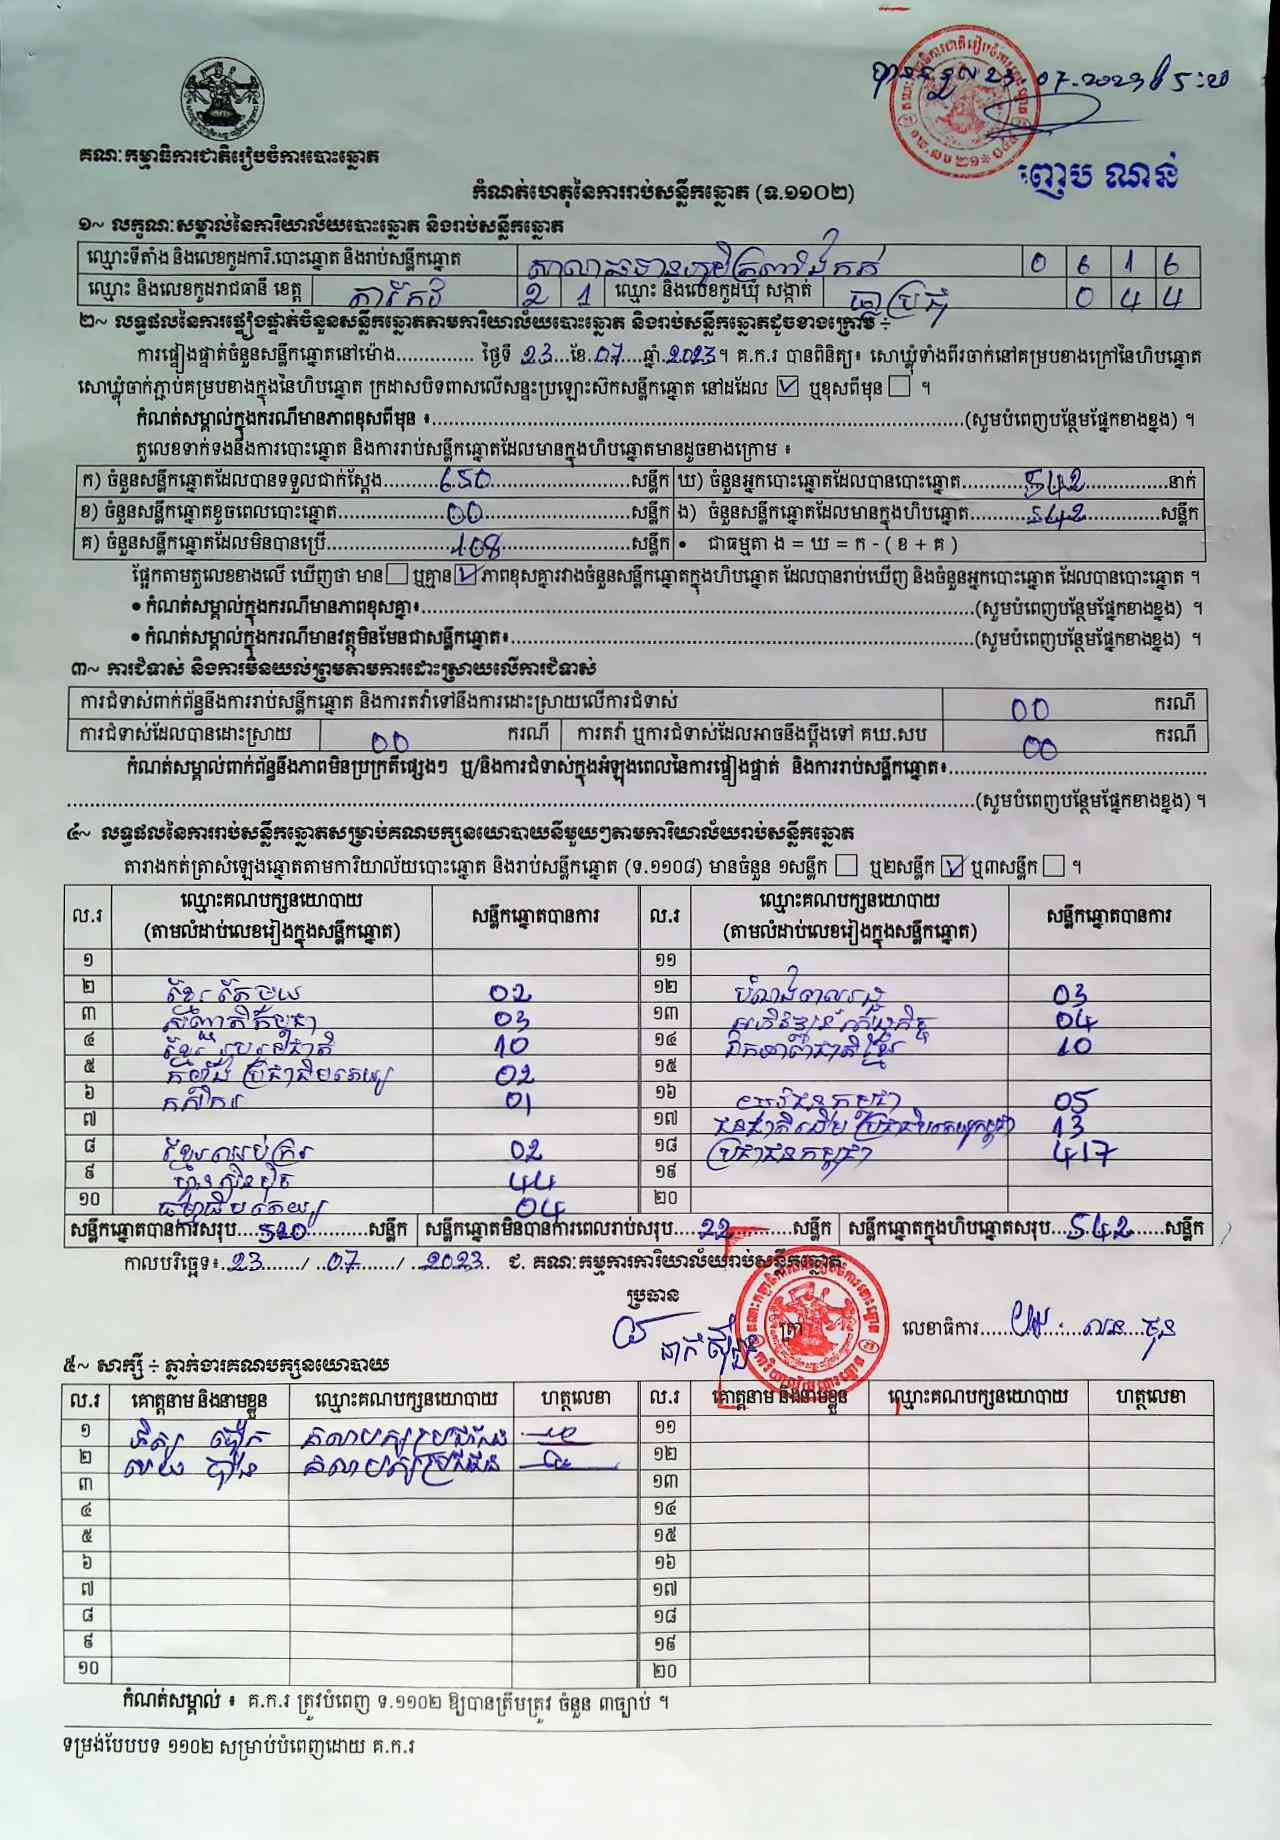 បានទទួល 23.07.2023
ញេប ណន់
គណៈកម្មាធិការជាតិរៀបចំការបោះឆ្នោត
កំណត់ហេតុនៃការរាប់សន្លឹកឆ្នោត (ទ.១១០២)
១~ លក្ខណៈសម្គាល់នៃការិយាល័យបោះឆ្នោត និងរាប់សន្លឹកឆ្នោត
ឈ្មោះទីតាំង និងលេខកូដការិ.បោះឆ្នោត និងរាប់សន្លឹកឆ្នោត 0 6 1 6
ឈ្មោះ និងលេខកូដរាជធានី ខេត្ត តាកែវ 2 1 ឈ្មោះ និងលេខកូដឃុំ សង្កាត់ 0 4 4
២~ លទ្ធផលនៃការផ្ទៀងផ្ទាត់ចំនួនសន្លឹកឆ្នោតតាមការិយាល័យបោះឆ្នោត និងរាប់សន្លឹកឆ្នោតដូចខាងក្រោម ÷
ការផ្ទៀងផ្ទាត់ចំនួនសន្លឹកឆ្នោតនៅម៉ោង.............. ថ្ងៃទី 23 ...ខែ. 07 ....ឆ្នាំ. 2023 ។ គ.ក.រ បានពិនិត្យ៖ សោឃ្លុំទាំងពីរចាក់នៅគម្របខាងក្រៅនៃហិបឆ្នោត
សោឃ្លុំចាក់ភ្ជាប់គម្របខាងក្នុងនៃហិបឆ្នោត ក្រដាសបិទពាសលើសន្ទះប្រឡោះស៊កសន្លឹកឆ្នោត នៅដដែល ☑ ឬខុសពីមុន ☐ ។
កំណត់សម្គាល់ក្នុងករណីមានភាពខុសពីមុន ៖..........(សូមបំពេញបន្ថែមផ្នែកខាងខ្នង) ។
តួលេខទាក់ទងនឹងការបោះឆ្នោត និងការរាប់សន្លឹកឆ្នោតដែលមានក្នុងហិបឆ្នោតមានដូចខាងក្រោម ៖
ក) ចំនួនសន្លឹកឆ្នោតដែលបានទទួលជាក់ស្តែង.........650..........សន្លឹក ឃ) ចំនួនអ្នកបោះឆ្នោតដែលបានបោះឆ្នោត..........542..........នាក់
ខ) ចំនួនសន្លឹកឆ្នោតខូចពេលបោះឆ្នោត..........00..........សន្លឹក ង) ចំនួនសន្លឹកឆ្នោតដែលមានក្នុងហិបឆ្នោត..........542..........សន្លឹក
គ) ចំនួនសន្លឹកឆ្នោតដែលមិនបានប្រើ..........108..........សន្លឹក • ជាធម្មតា ង = ឃ = ក - ( ខ + គ )
ផ្អែកតាមតួលេខខាងលើ ឃើញថា មាន ☐ ឬគ្មាន ☑ ភាពខុសគ្នារវាងចំនួនសន្លឹកឆ្នោតក្នុងហិបឆ្នោត ដែលបានរាប់ឃើញ និងចំនួនអ្នកបោះឆ្នោត ដែលបានបោះឆ្នោត ។
• កំណត់សម្គាល់ក្នុងករណីមានភាពខុសគ្នា៖..........(សូមបំពេញបន្ថែមផ្នែកខាងខ្នង) ។
• កំណត់សម្គាល់ក្នុងករណីមានវត្ថុមិនមែនជាសន្លឹកឆ្នោត៖..........(សូមបំពេញបន្ថែមផ្នែកខាងខ្នង) ។
៣~ ការជំទាស់ និងការមិនយល់ព្រមតាមការដោះស្រាយលើការជំទាស់
ការជំទាស់ពាក់ព័ន្ធនឹងការរាប់សន្លឹកឆ្នោត និងការតវ៉ាទៅនឹងការដោះស្រាយលើការជំទាស់ 00 ករណី
ការជំទាស់ដែលបានដោះស្រាយ 00 ករណី ការតវ៉ា ឬការជំទាស់ដែលអាចនឹងប្តឹងទៅ គឃ.សប 00 ករណី
កំណត់សម្គាល់ពាក់ព័ន្ធនឹងភាពមិនប្រក្រតីផ្សេងៗ ឬ/និងការជំទាស់ក្នុងអំឡុងពេលនៃការផ្ទៀងផ្ទាត់ និងការរាប់សន្លឹកឆ្នោត៖..........
..........(សូមបំពេញបន្ថែមផ្នែកខាងខ្នង) ។
៤~ លទ្ធផលនៃការរាប់សន្លឹកឆ្នោតសម្រាប់គណបក្សនយោបាយនីមួយៗតាមការិយាល័យរាប់សន្លឹកឆ្នោត
តារាងកត់ត្រាសំឡេងឆ្នោតតាមការិយាល័យបោះឆ្នោត និងរាប់សន្លឹកឆ្នោត (ទ.១១០៨) មានចំនួន ១សន្លឹក ☐ ឬ២សន្លឹក ☑ ឬ៣សន្លឹក ☐ ។
ល.រ ឈ្មោះគណបក្សនយោបាយ (តាមលំដាប់លេខរៀងក្នុងសន្លឹកឆ្នោត) សន្លឹកឆ្នោតបានការ ល.រ ឈ្មោះគណបក្សនយោបាយ (តាមលំដាប់លេខរៀងក្នុងសន្លឹកឆ្នោត) សន្លឹកឆ្នោតបានការ
១ ១១
២ ខ្មែរតែមួយ 02 ១២ 03
៣ សញ្ជាតិកម្ពុជា 03 ១៣ 04
៤ ខ្មែររួបរួមជាតិ 10 ១៤ ឯកភាពជាតិខ្មែរ 10
៥ កម្លាំងប្រជាធិបតេយ្យ 02 ១៥
៦ កសិករ 01 ១៦ យុវជនកម្ពុជា 05
៧ ១៧ ជនជាតិដើមប្រជាធិបតេយ្យកម្ពុជា 13
៨ 02 ១៨ ប្រជាជនកម្ពុជា 417
៩ ហ៊្វុនស៊ិនប៉ិច 44 ១៩
១០ ធម្មាធិបតេយ្យ 04 ២០
សន្លឹកឆ្នោតបានការសរុប....520..........សន្លឹក សន្លឹកឆ្នោតមិនបានការពេលរាប់សរុប....22..........សន្លឹក សន្លឹកឆ្នោតក្នុងហិបឆ្នោតសរុប...542......សន្លឹក
កាលបរិច្ឆេទ៖..23......./ ..07......./ ..2023. ជ. គណៈកម្មការការិយាល័យរាប់សន្លឹកឆ្នោត
ប្រធាន
ត្រា
លេខាធិការ..........
៥~ សាក្សី ÷ ភ្នាក់ងារគណបក្សនយោបាយ
ល.រ គោត្តនាម និងនាមខ្លួន ឈ្មោះគណបក្សនយោបាយ ហត្ថលេខា ល.រ គោត្តនាម និងនាមខ្លួន ឈ្មោះគណបក្សនយោបាយ ហត្ថលេខា
១ ១១
២ គណបក្សប្រជាជន ១២
៣ ១៣
៤ ១៤
៥ ១៥
៦ ១៦
៧ ១៧
៨ ១៨
៩ ១៩
១០ ២០
កំណត់សម្គាល់ ៖ គ.ក.រ ត្រូវបំពេញ ទ.១១០២ ឱ្យបានត្រឹមត្រូវ ចំនួន ៣ច្បាប់ ។
ទម្រង់បែបបទ ១១០២ សម្រាប់បំពេញដោយ គ.ក.រ